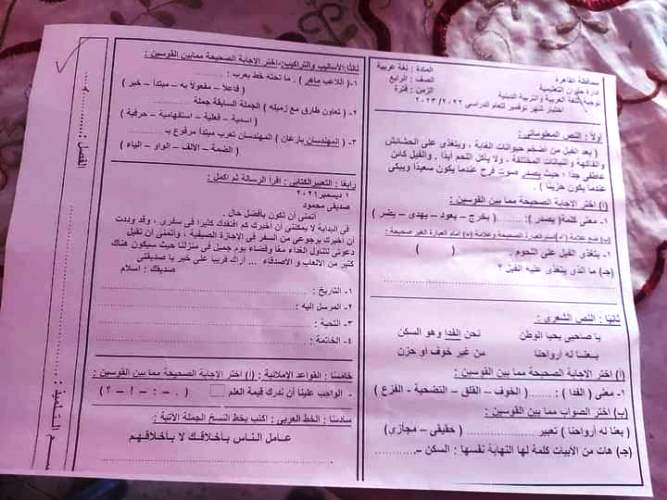 محافظة القاهرة
ادارة حلوان التعليمية
توجيه اللغة العربية والتربية الدينية
اختبار شهر نوفمبر للعام الدراسي ٢٠٢٣/٢٠٢٢
المادة : لغة عربية
الصف : الرابع
الزمن : فترة
أولاً : النص المعلوماتى :
( يعد الفيل من أضخم حيوانات الغابة ، ويتغذى على الحشائش
والفاكهة والنباتات المختلفة ، ولا يأكل اللحم أبدًا . والفيل كائن
عاطفى جدًا ، حيث يصدر صوت فرح عندما يكون سعيدًا ويبكى
عندما يكون حزينًا ) .
(أ) أختر الإجابة الصحيحة مما بين القوسين :
١- معنى كلمة( يصدر ): ...... ( يخرج – يعود – يهدى – يضر )
(ب) ضع علامة (√) أمام العبارة الصحيحة وعلامة (×) أمام العبارة الغير صحيحة :
١- يتغذى الفيل على اللحوم . ( )
(جـ) ما الذى يتغذى عليه الفيل ؟
ثانيًا : النص الشعرى :
يا صاحبى يحيا الوطن نحن الفدا وهو السكن
بـعنـا له أرواحنـا من غير خوف أو حزن
(أ) أختر الإجابة الصحيحة مما بين القوسين :
١- معنى ( الفدا ) : .......... ( الخوف – القلق – التضحية – الفزع )
(ب) أختر الصواب مما بين القوسين :
( بعنا له أرواحنا ) تعبير ............ ( حقيقى – مجازى )
(جـ) هات من الأبيات كلمة لها النهاية نفسها : السكن – ..........
ثالثًا:الأساليب والتراكيب:اختر الإجابة الصحيحة ممابين القوسين :
١-( اللاعب ماهر ) . ما تحته خط يعرب : ........
( فاعلاً – مفعولاً به – مبتدأ – خبر )
٢-( تعاون طارق مع زميله ) الجملة السابقة جملة ..........
( اسمية – فعلية – استفهامية – حرفية )
٣-( المهندسان بارعان ) المهندسان تعرب مبتدأ مرفوع بـ ......
( الضمة – الألف – الواو – الياء )
رابعًا : التعبيرالكتابى : اقرأ الرسالة ثم اكمل :
١ ديسمبر٢٠٢١
صديقى محمود
أتمنى أن تكون بأفضل حال .
فى البداية لا يمكننى أن أخبرك كم أفتقدك كثيرًا فى سفرى ، وقد وددت
أن أخبرك برجوعى من السفر فى الإجازة الصيفية ، وأتمنى أن تقبل
دعوتى لتناول الغداء معًا وقضاء يوم جميل فى منزلنا حيث سيكون هناك
كثير من الألعاب و الأصدقاء ... أراك قريبا على خير يا صديقى
صديقك : اسلام
١- التاريخ :
٢- المرسل إليه :
٣- التحية :
٤- الخاتمة :
خامسًا : القواعد الإملائية : (أ) أختر الإجابة الصحيحة مما بين القوسين :
- الواجب علينا أن ندرك قيمة العلم ( . – : – ! – ؟ )
سادسًا : الخط العربى : اكتب بخط النسخ الجملة الآتية :
عـامل النـاس بأخـلاقـك لا بأخـلاقـهـم
الفصل :